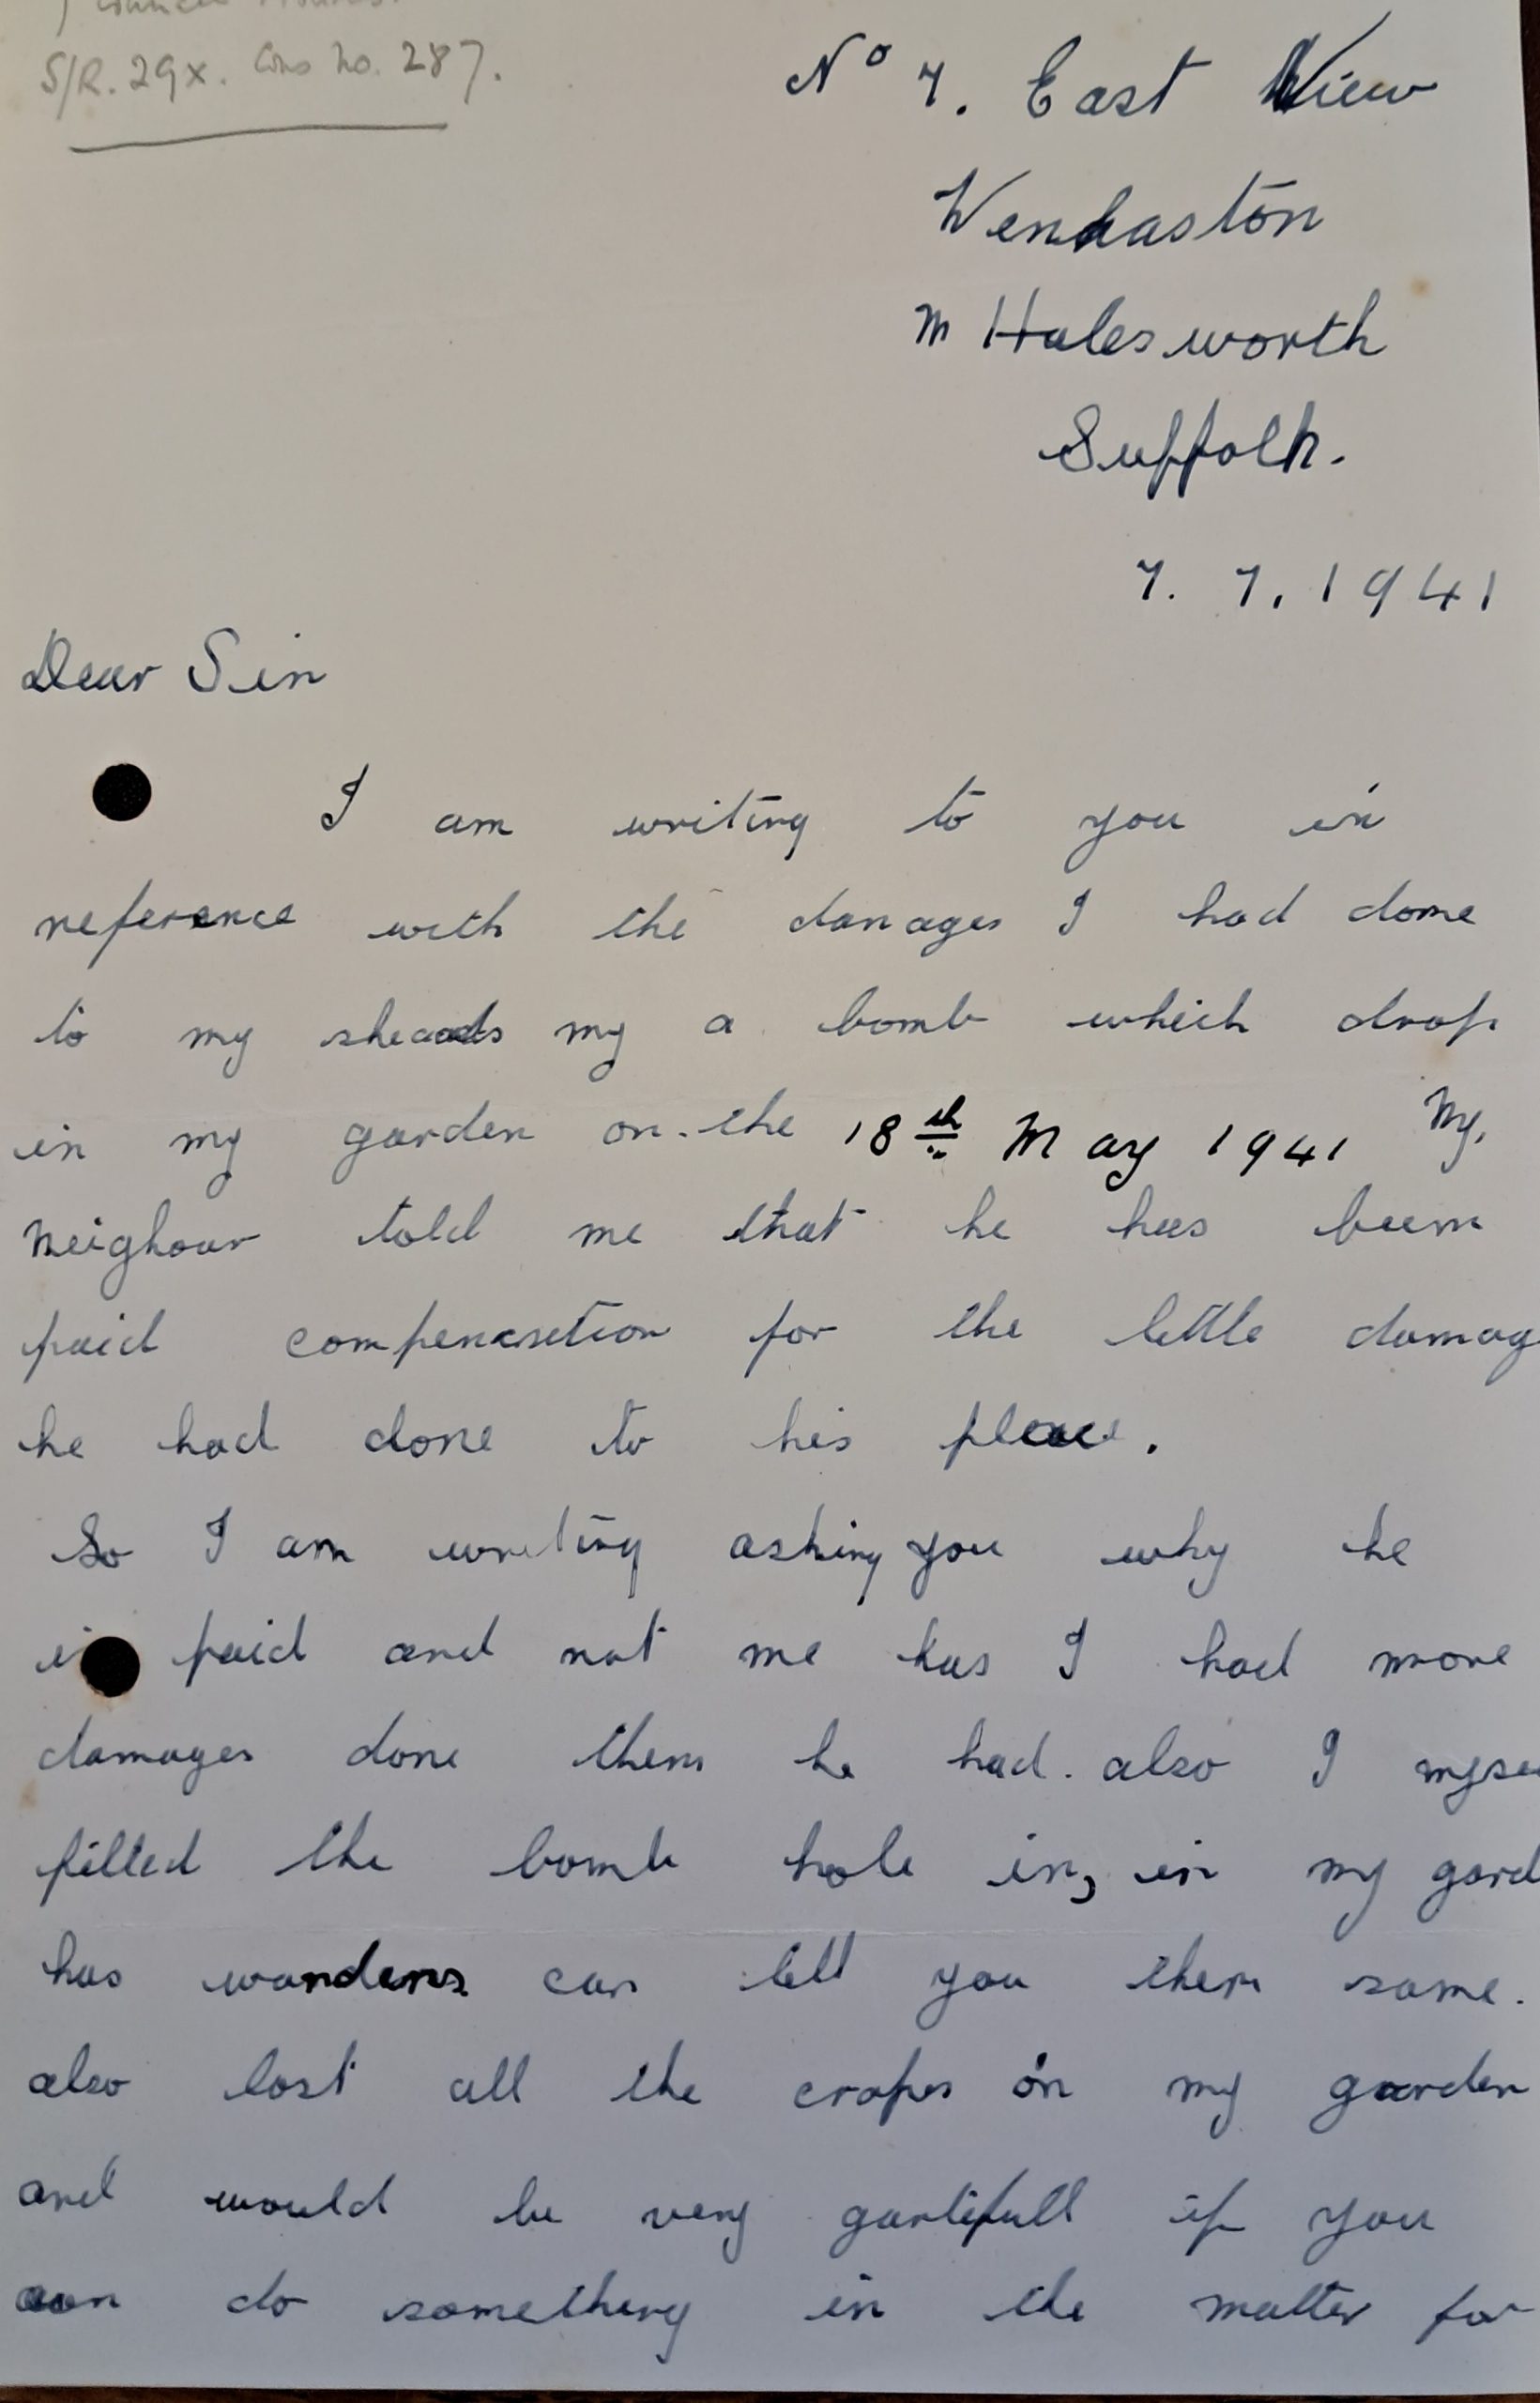 Council Houses.
S/R. 29x. Cons No. 287.
No 7. East View
Wenhaston
Nr Halesworth
Suffolk.
7. 7. 1941
Dear Sir
I am writing to you in
reference with the danages I had done
to my sheads my a bomb which drop
in my garden on the 18th May 1941 My,
Neighour told me that he has been
paid compensation for the little damag
he had done to his place.
So I am writing asking you why he
is paid and not me has I had more
damages done then he had. also I myse
filled the bomb hole in, in my gard
has wardens can tell you them same.
also lost all the crops on my garden
and would be very gartifull if you
can do something in the matter for